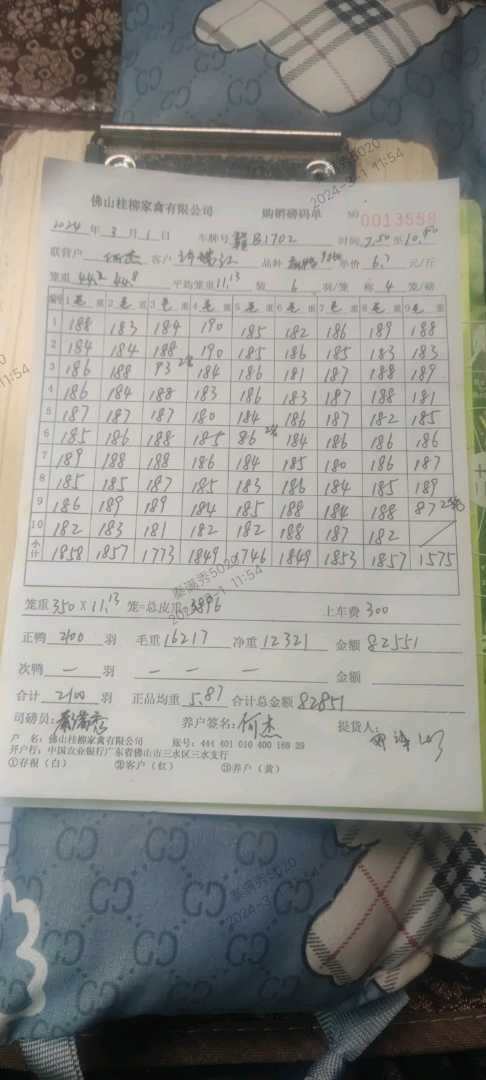 佛山桂柳家禽有限公司 购销磅码单 NO 0013558
2024 年 3 月 1 日 车牌号 赣B1702 时间 7.50 至 10.50
联营户 何杰 客户 品种 单价 6.7 元/斤
笼重 44.8 44.8 平均笼重 11.13 装 6 羽/笼 称 4 笼/磅
编号 1 毛 重 2 毛 重 3 毛 重 4 毛 重 5 毛 重 6 毛 重 7 毛 重 8 毛 重 9 毛 重
1 188 183 184 190 185 182 186 189 188
2 184 184 188 190 185 186 185 183 183
3 186 188 93 2笼 184 186 181 187 188 189
4 186 184 188 183 186 183 187 188 181
5 187 187 187 180 184 186 187 182 185
6 185 186 188 185 86 2笼 184 186 186 186
7 189 188 188 186 184 185 180 186 187
8 185 185 187 185 183 186 184 185 189
9 186 189 189 184 185 188 184 188 87 2笼
10 182 183 181 182 182 188 187 182
小计 1858 1857 1773 1849 1746 1849 1853 1857 1575
笼重 350 X 11.13 笼=总皮重 3896 上车费 300
正鸭 2100 羽 毛重 16217 净重 12321 金额 82551
次鸭 — 羽 — — — 金额
合计 2100 羽 正品均重 5.87 合计总金额 82851
司磅员: 秦满秀 养户签名: 何杰 提货人:
户 名: 佛山桂柳家禽有限公司 账号: 444 601 010 400 169 39
开户行: 中国农业银行广东省佛山市三水区三水支行
①存根（白） ②客户（红） ③养户（黄）
秦满秀5020
2024-3-1 11:54
11:54
秦满秀5020
2024-3-1 11:54
秦满秀5020
2024-3-1 11:54